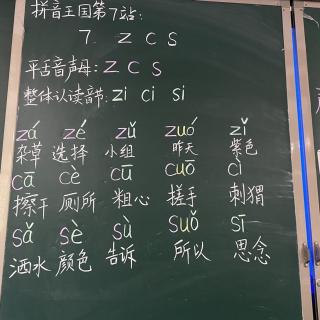 拼音王国第7站:
7. z c s
平舌音声母: z c s
整体认读音节: zi ci si
zá zé zǔ zuó zǐ
杂草 选择 小组 昨天 紫色
cā cè cū cuō cì
擦干 厕所 粗心 搓手 刺猬
sǎ sè sù suǒ sī
洒水 颜色 告诉 所以 思念